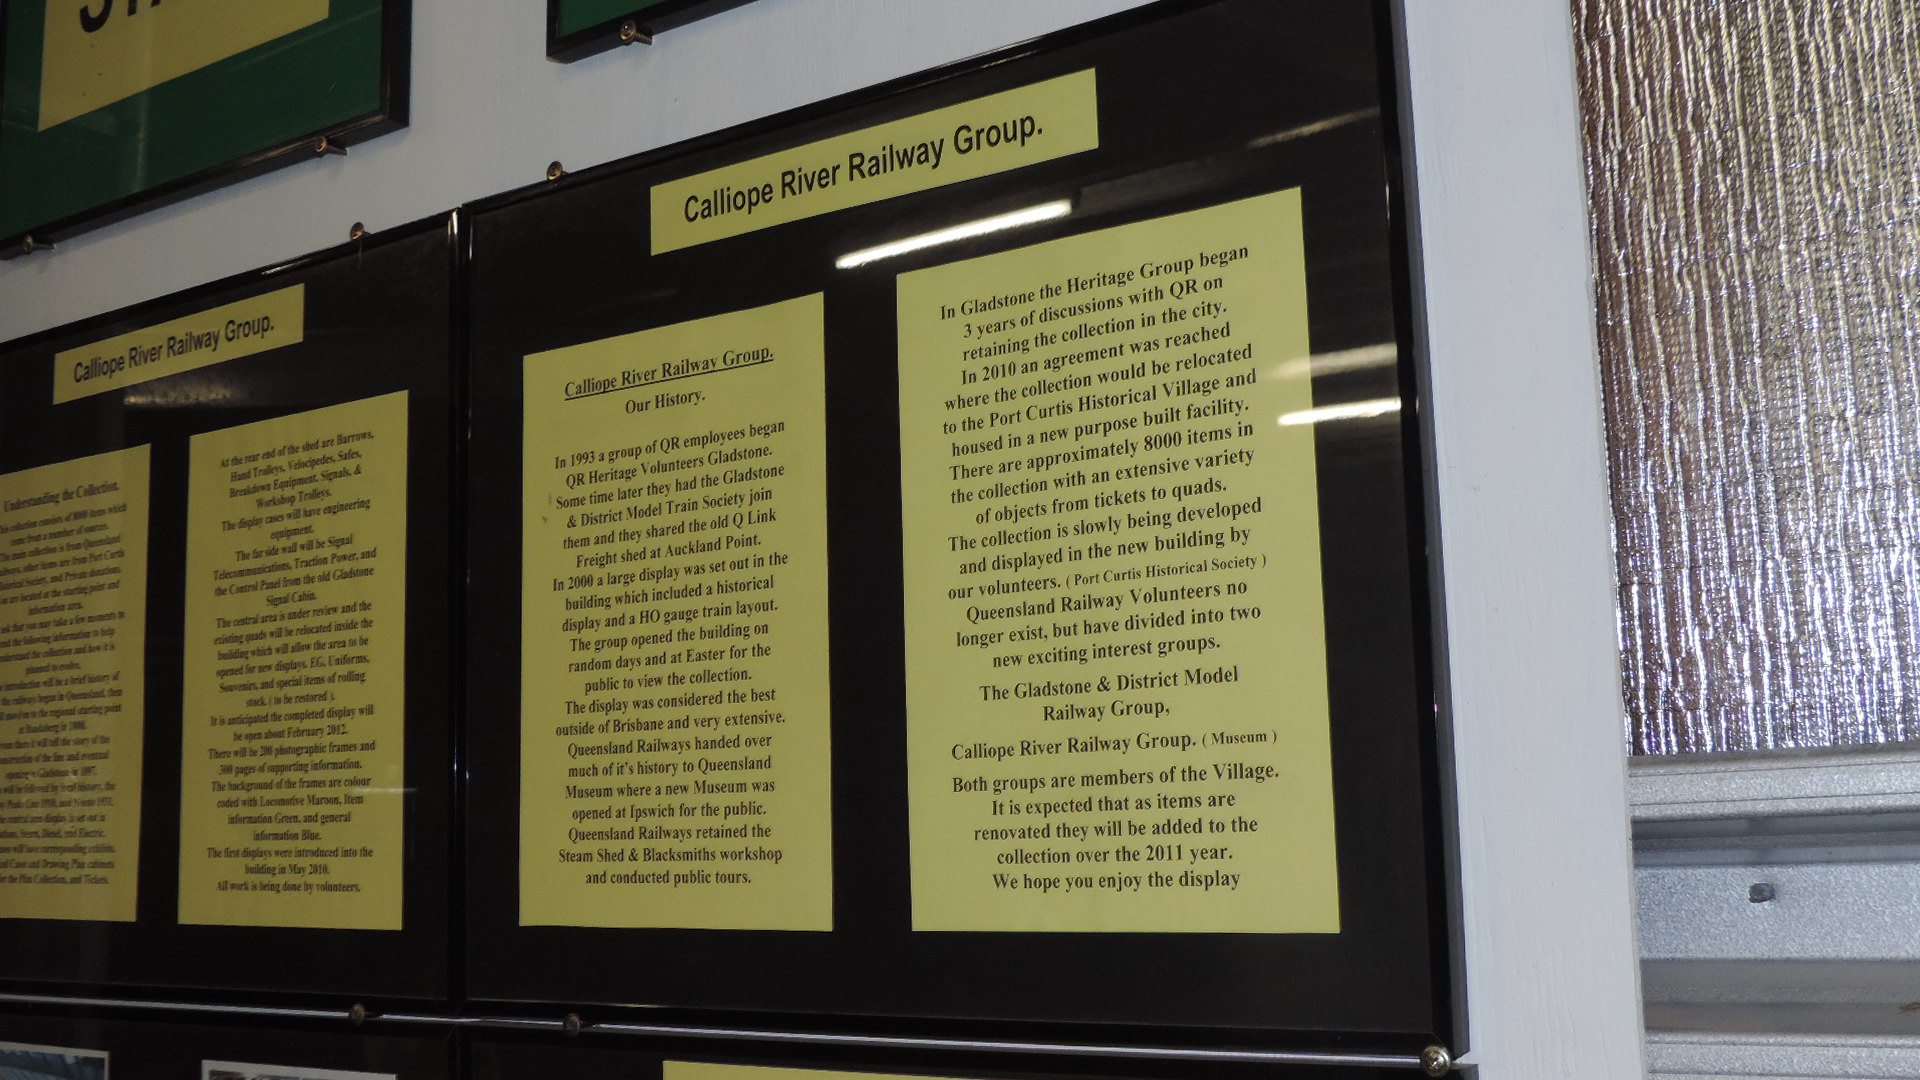 Calliope River Railway Group.
Understanding the Collection.
This collection consists of 8000 items which
come from a number of sources.
The main collection is from Queensland
Railways, other items are from Port Curtis
Historical Society, and Private donations.
You are located at the starting point and
information area.
ask that you may take a few moments to
read the following information to help
understand the collection and how it is
planned to evolve.
introduction will be a brief history of
the railways began in Queensland, then
move on to the regional starting point
at Bundaberg in 1888.
From there it will tell the story of the
construction of the line and eventual
opening in Gladstone in 1897.
will be followed by local history, the
central area display is set out in
Steam, Diesel, and Electric.
will have corresponding exhibits.
Cases and Drawing Plan cabinets
for the Plan Collection, and Tickets.
At the rear end of the shed are Barrows,
Hand Trolleys, Velocipedes, Safes,
Breakdown Equipment, Signals, &
Workshop Trolleys.
The display cases will have engineering
equipment.
The far side wall will be Signal
Telecommunications, Traction Power, and
the Control Panel from the old Gladstone
Signal Cabin.
The central area is under review and the
existing quads will be relocated inside the
building which will allow the area to be
opened for new displays. EG, Uniforms,
Souvenirs, and special items of rolling
stock. ( to be restored ).
It is anticipated the completed display will
be open about February 2012.
There will be 200 photographic frames and
300 pages of supporting information.
The background of the frames are colour
coded with Locomotive Maroon, Item
information Green, and general
information Blue.
The first displays were introduced into the
building in May 2010.
All work is being done by volunteers.
Calliope River Railway Group.
Calliope River Railway Group.
Our History.
In 1993 a group of QR employees began
QR Heritage Volunteers Gladstone.
Some time later they had the Gladstone
& District Model Train Society join
them and they shared the old Q Link
Freight shed at Auckland Point.
In 2000 a large display was set out in the
building which included a historical
display and a HO gauge train layout.
The group opened the building on
random days and at Easter for the
public to view the collection.
The display was considered the best
outside of Brisbane and very extensive.
Queensland Railways handed over
much of it's history to Queensland
Museum where a new Museum was
opened at Ipswich for the public.
Queensland Railways retained the
Steam Shed & Blacksmiths workshop
and conducted public tours.
In Gladstone the Heritage Group began
3 years of discussions with QR on
retaining the collection in the city.
In 2010 an agreement was reached
where the collection would be relocated
to the Port Curtis Historical Village and
housed in a new purpose built facility.
There are approximately 8000 items in
the collection with an extensive variety
of objects from tickets to quads.
The collection is slowly being developed
and displayed in the new building by
our volunteers. ( Port Curtis Historical Society )
Queensland Railway Volunteers no
longer exist, but have divided into two
new exciting interest groups.
The Gladstone & District Model
Railway Group,
Calliope River Railway Group. ( Museum )
Both groups are members of the Village.
It is expected that as items are
renovated they will be added to the
collection over the 2011 year.
We hope you enjoy the display